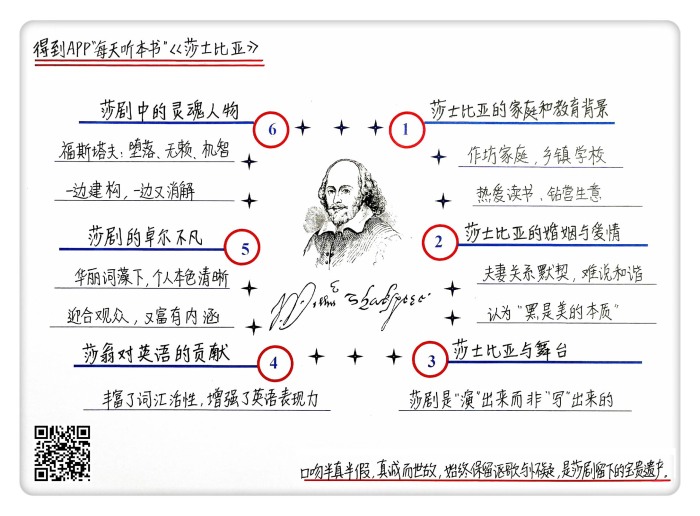 得到APP"每天听本书"《莎士比亚》
1
莎士比亚的家庭和教育背景
作坊家庭，乡镇学校
热爱读书、钻营生意
2
莎士比亚的婚姻与爱情
夫妻关系默契，难说和谐
认为"黑是美的本质"
3
莎士比亚与舞台
莎剧是"演"出来而非"写"出来的
4
莎翁对英语的贡献
丰富了词汇活性，增强了英语表现力
5
莎剧的卓尔不凡
华丽词藻下，个人本色清晰
迎合观众，又富有内涵
6
莎剧中的灵魂人物
福斯塔夫：堕落、无赖、机智
一边建构，一边又消解
口吻半真半假，真诚而世故，始终保留讴歌与怀疑，是莎剧留下的宝贵遗产。